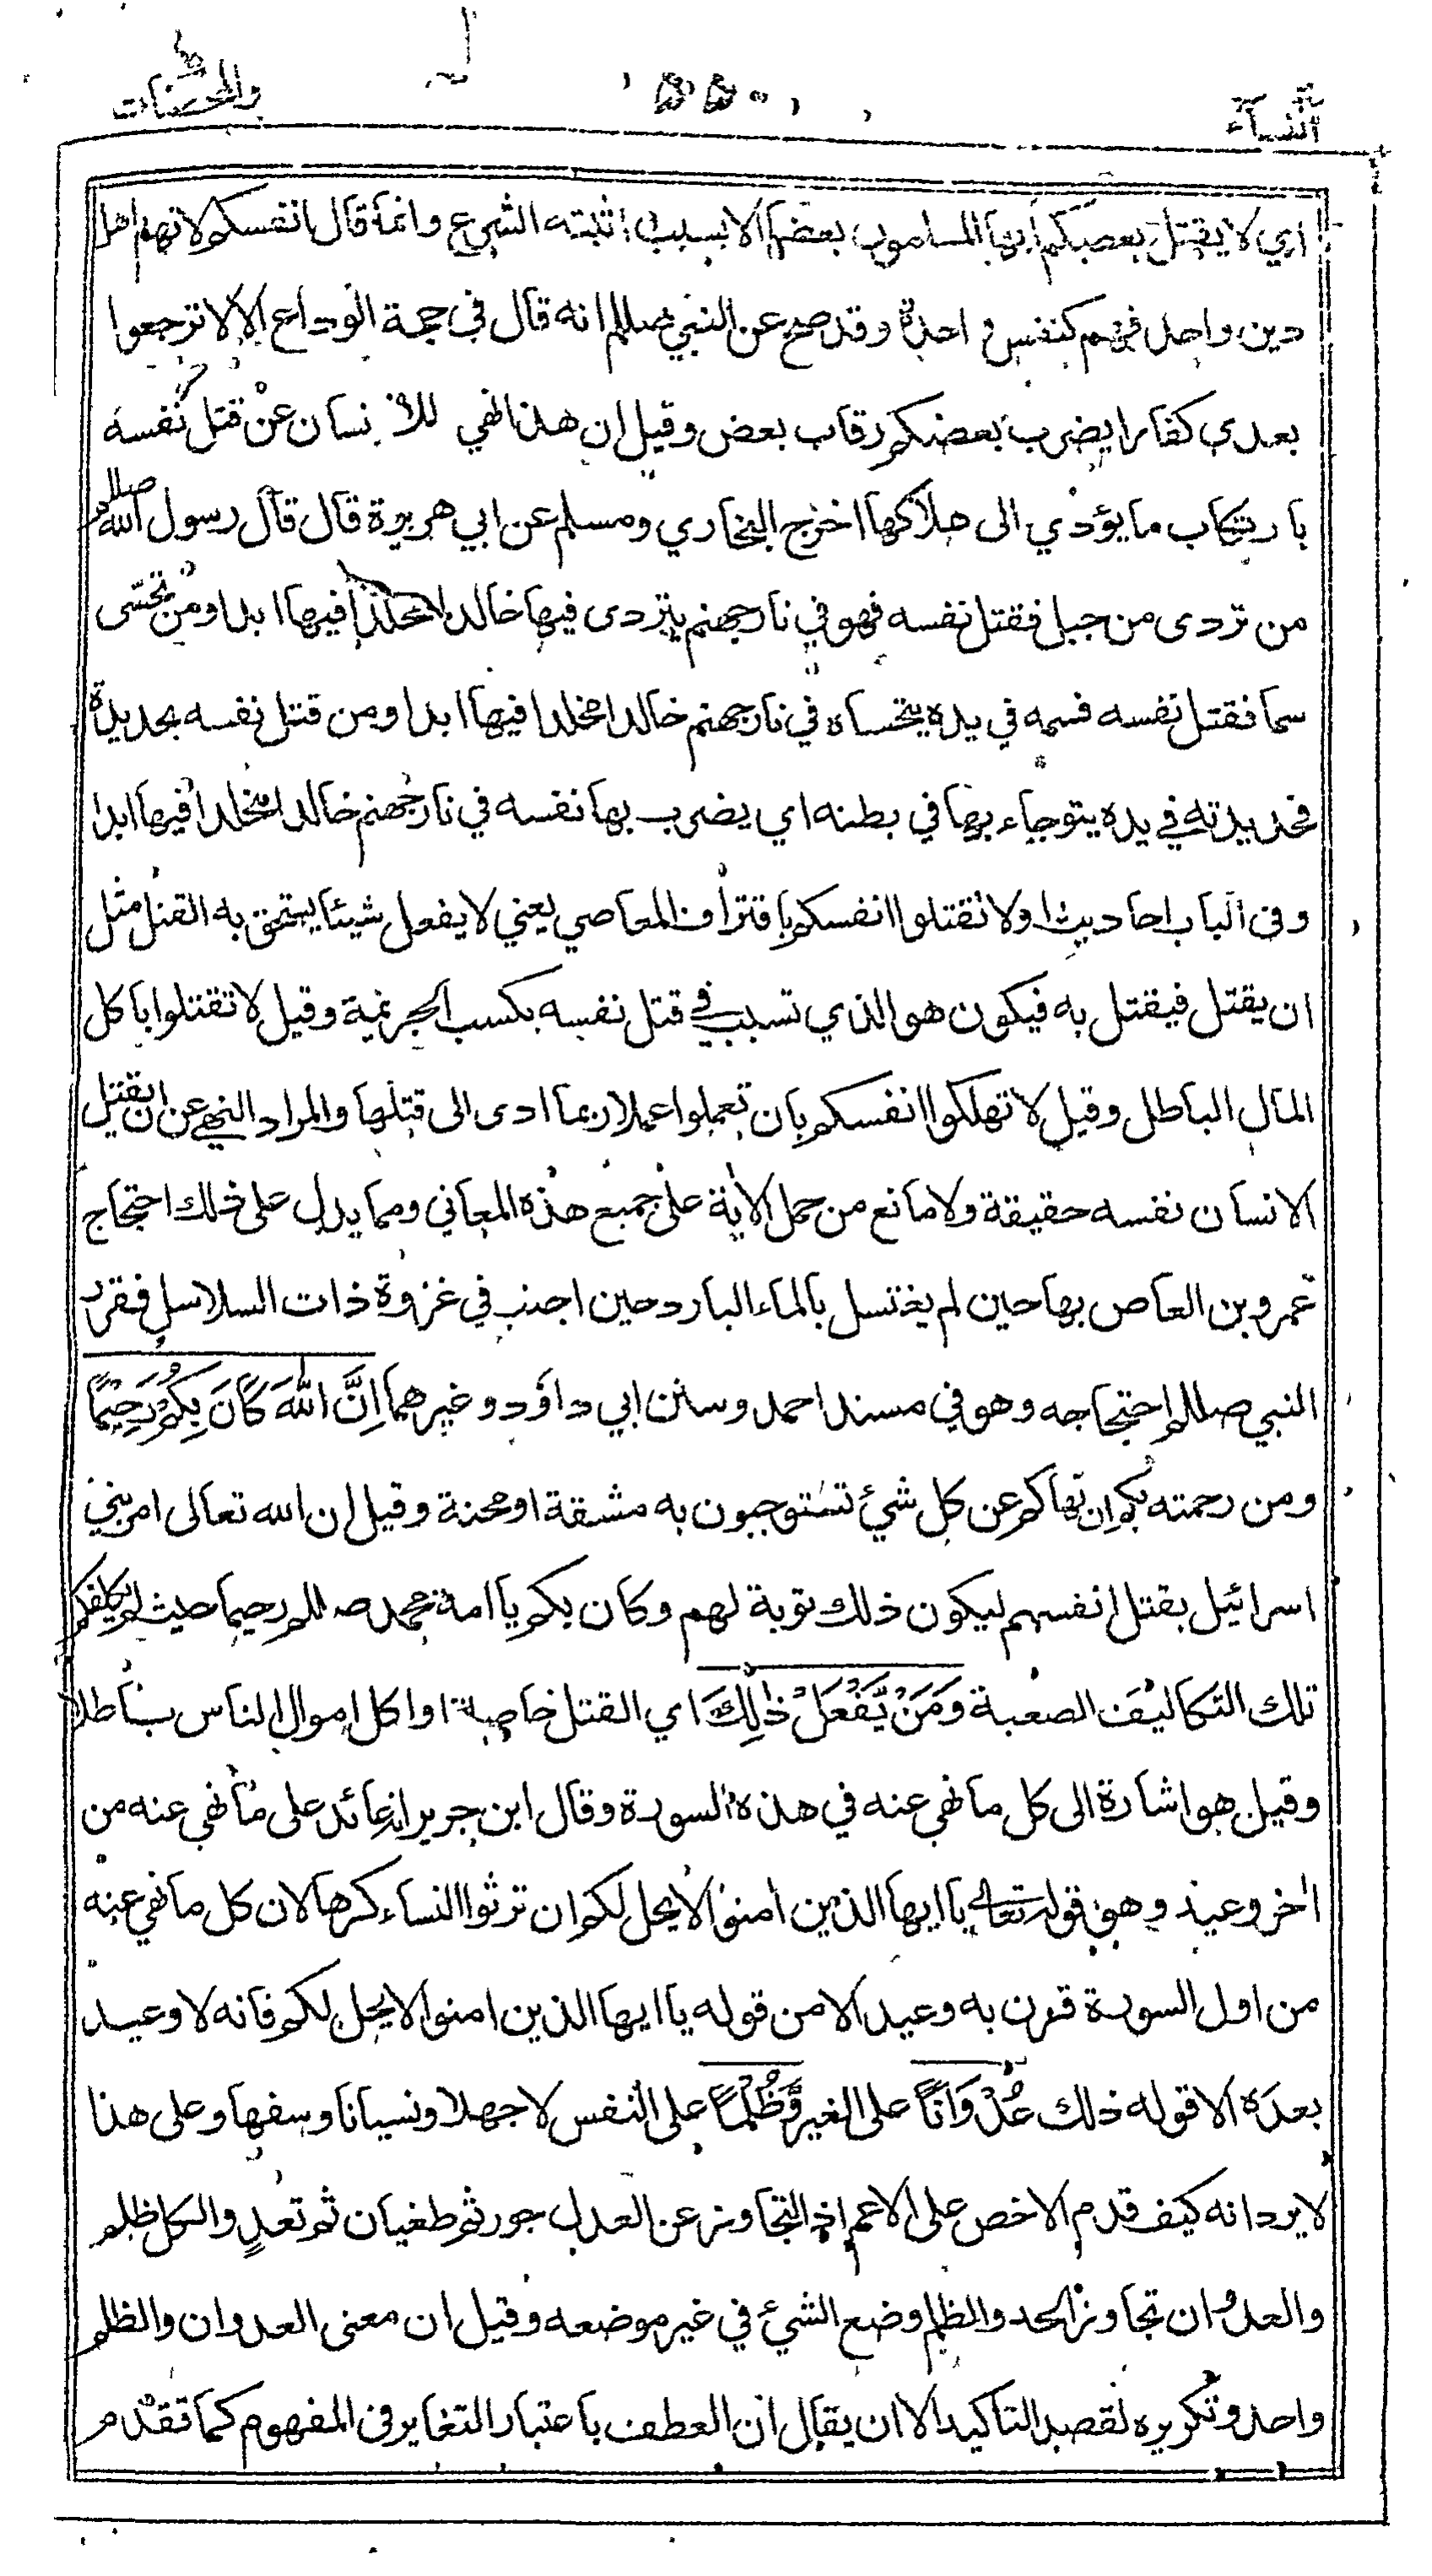 النسآء ٥٥٠ والمحصنات
اي لا يقتل بعضكم ايها المسلمون بعضا الا بسبب اثبته الشرع وانما قال انفسكم لانهم اهل
دين واحد فهم كنفس واحدة وقد صح عن النبي صللم انه قال في حجة الوداع الا لا ترجعوا
بعدي كفارا يضرب بعضكم رقاب بعض وقيل ان هذا نهي للانسان عن قتل نفسه
بارتكاب ما يؤدي الى هلاكها اخرج البخاري ومسلم عن ابي هريرة قال قال رسول الله صللم
من تردى من جبل فقتل نفسه فهو في نار جهنم يتردى فيها خالدا مخلدا فيها ابدا ومن تحسى
سما فقتل نفسه فسمه في يده يتحساه في نار جهنم خالدا مخلدا فيها ابدا ومن قتل نفسه بحديدة
فحديدته في يده يتوجاء بها في بطنه اي يضرب بها نفسه في نار جهنم خالدا مخلدا فيها ابدا
وفي الباب احاديث او لا تقتلوا انفسكم باقتراف المعاصي يعني لا يفعل شيئا يستحق به القتل مثل
ان يقتل فيقتل به فيكون هو الذي تسبب في قتل نفسه بكسب الجريمة وقيل لا تقتلوا باكل
المال الباطل وقيل لا تهلكوا انفسكم بان تعملوا عملا ربما ادى الى قتلها والمراد النهي عن ان يقتل
الانسان نفسه حقيقة ولا مانع من حمل الاية على جميع هذه المعاني ومما يدل على ذلك احتجاج
عمرو بن العاص بها حين لم يغتسل بالماء البارد حين اجنب في غزوة ذات السلاسل فقرر
النبي صللم احتجاجه وهو في مسند احمد وسنن ابي داؤد وغيرهما اِنَّ اللّٰهَ كَانَ بِكُمْ رَحِيْمًا
ومن رحمته بكم ان نهاكم عن كل شئ تستوجبون به مشقة او محنة وقيل ان الله تعالى امر بني
اسرائيل بقتل انفسهم ليكون ذلك توبة لهم وكان بكم يا امة محمد صللم رحيما حيث لم يكلفكم
تلك التكاليف الصعبة وَمَنْ يَّفْعَلْ ذٰلِكَ اي القتل خاصة او اكل اموال الناس باطلا
وقيل هو اشارة الى كل ما نهي عنه في هذه السورة وقال ابن جرير انه عائد على ما نهي عنه من
اخر وعيد وهو قوله تعالى يا ايها الذين امنوا لا يحل لكم ان ترثوا النساء كرها لان كل ما نهي عنه
من اول السورة قرن به وعيد الا من قوله يا ايها الذين امنوا لا يحل لكم فانه لا وعيد
بعده الا قوله ذلك عُدْوَانًا على الغير وَّظُلْمًا على النفس لا جهلا ونسيانا وسفها وعلى هذا
لا يرد انه كيف قدم الاخص على الاعم اذ التجاوز عن العدل جور ثم طغيان ثم تعدٍ والكل ظلم
والعدوان تجاوز الحد والظلم وضع الشئ في غير موضعه وقيل ان معنى العدوان والظلم
واحد وتكريره لقصد التاكيد الا ان يقال ان العطف باعتبار التغاير في المفهوم كما تقدم